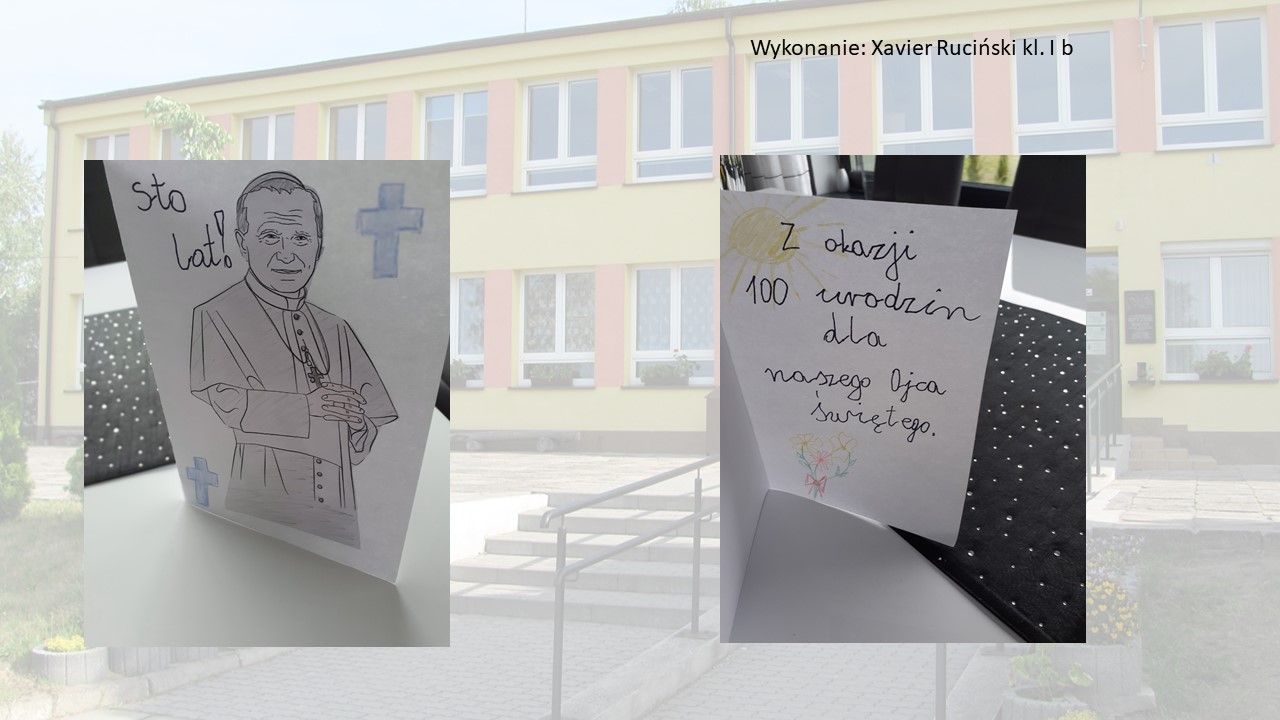 Wykonanie: Xavier Ruciński kl. I b
sto
lat!
Z okazji
100 urodzin
dla
naszego Ojca
świętego.